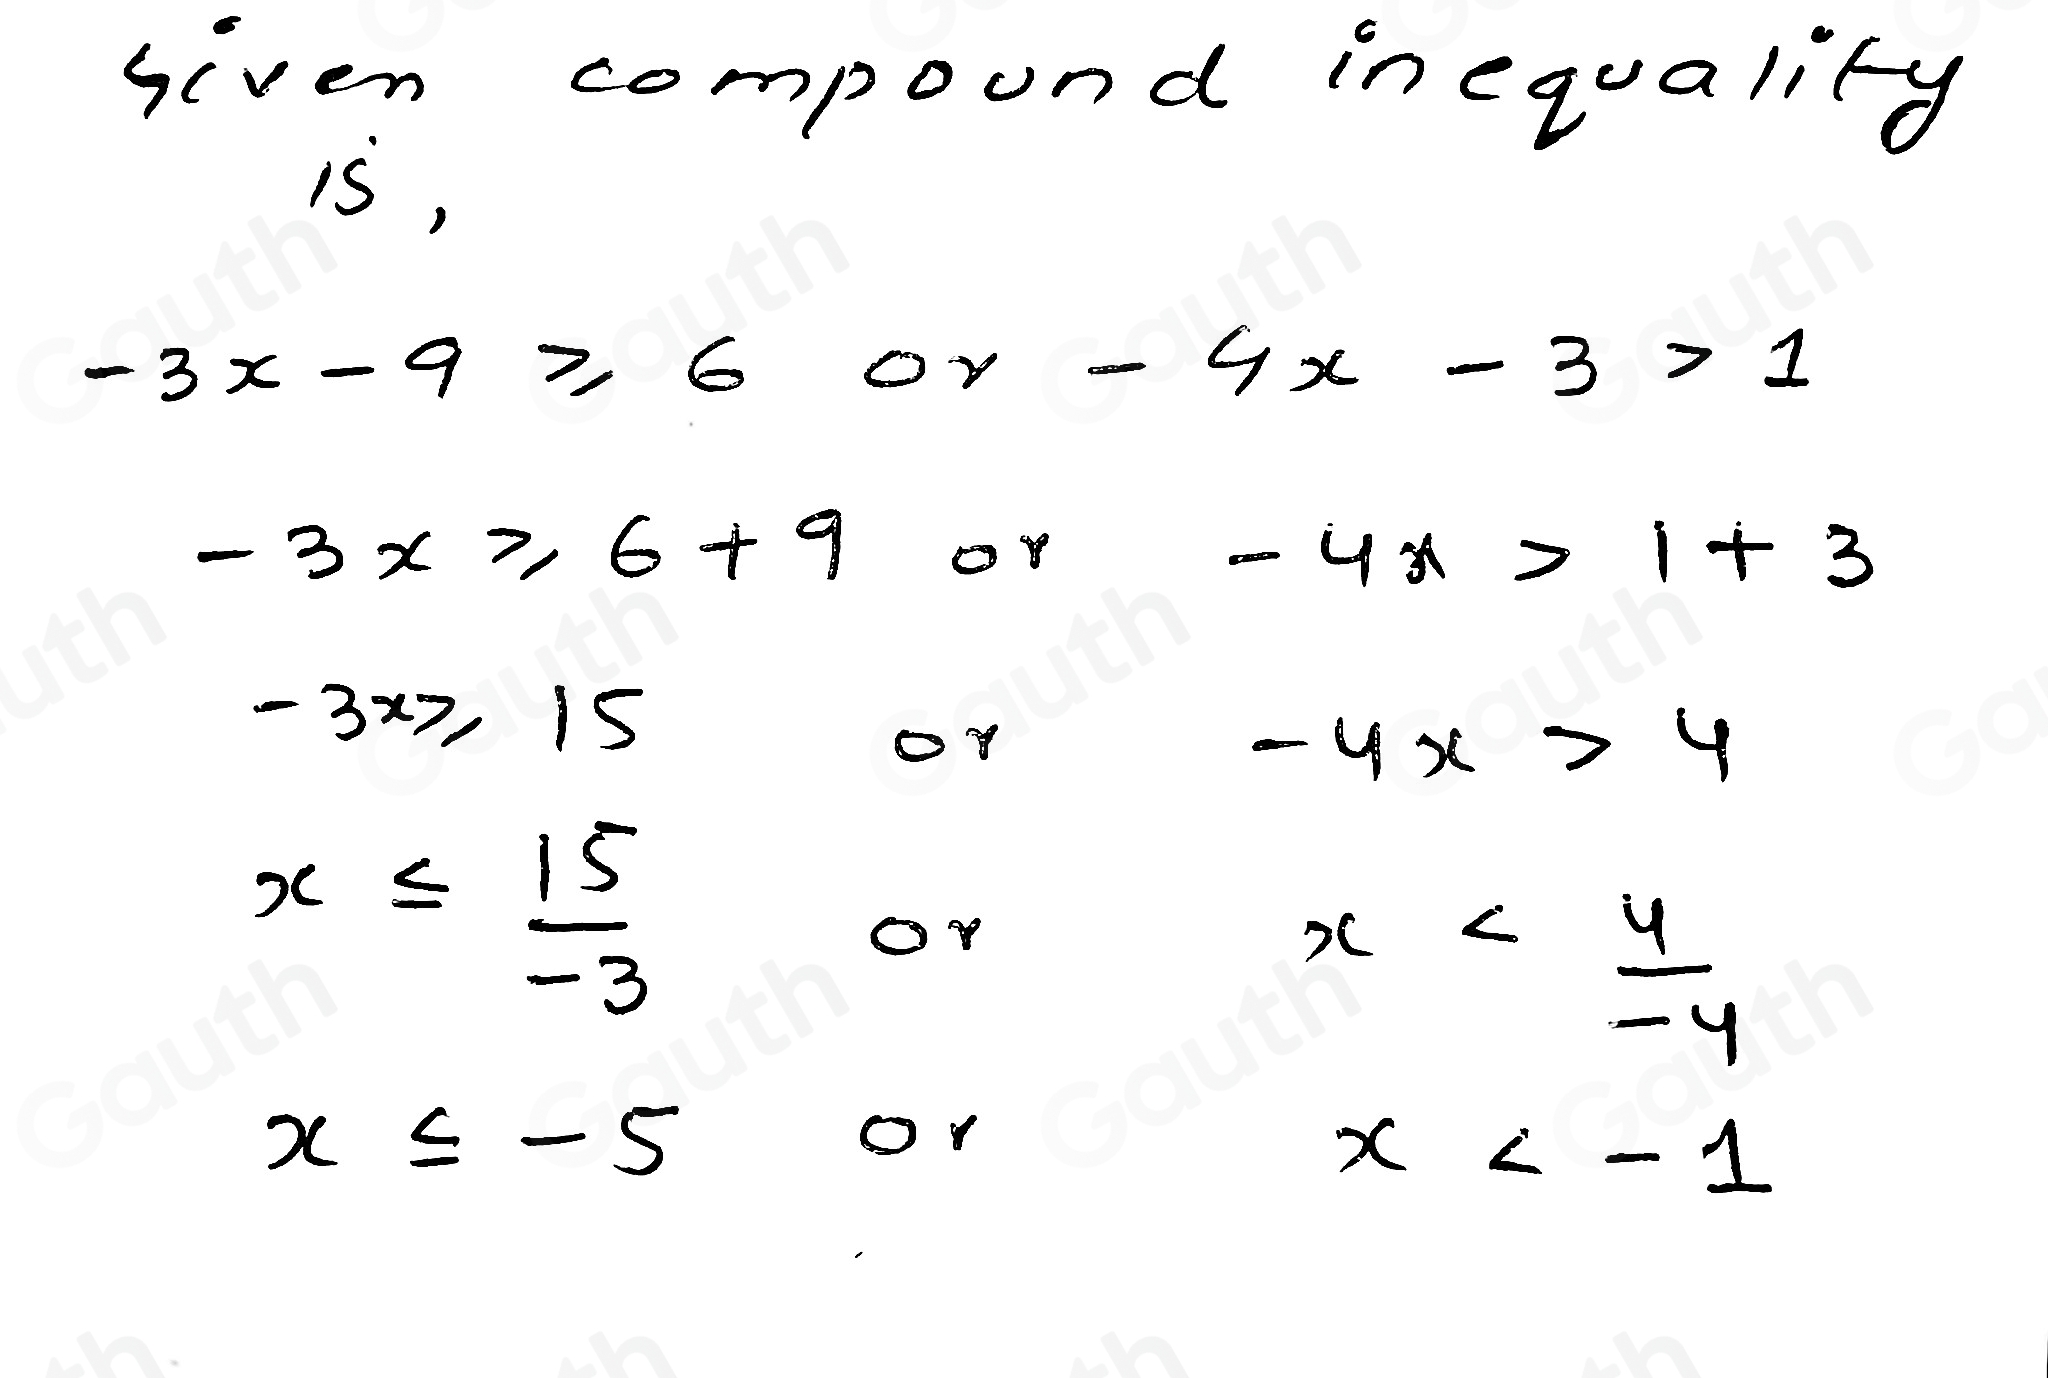 Given compound inequality
is,
-3x - 9 ⩾ 6 or -4x - 3 > 1
-3x ⩾ 6 + 9 or -4x > 1 + 3
-3x ⩾ 15 or -4x > 4
x ≤ 15/-3 or x < 4/-4
x ≤ -5 or x < -1
Gauth